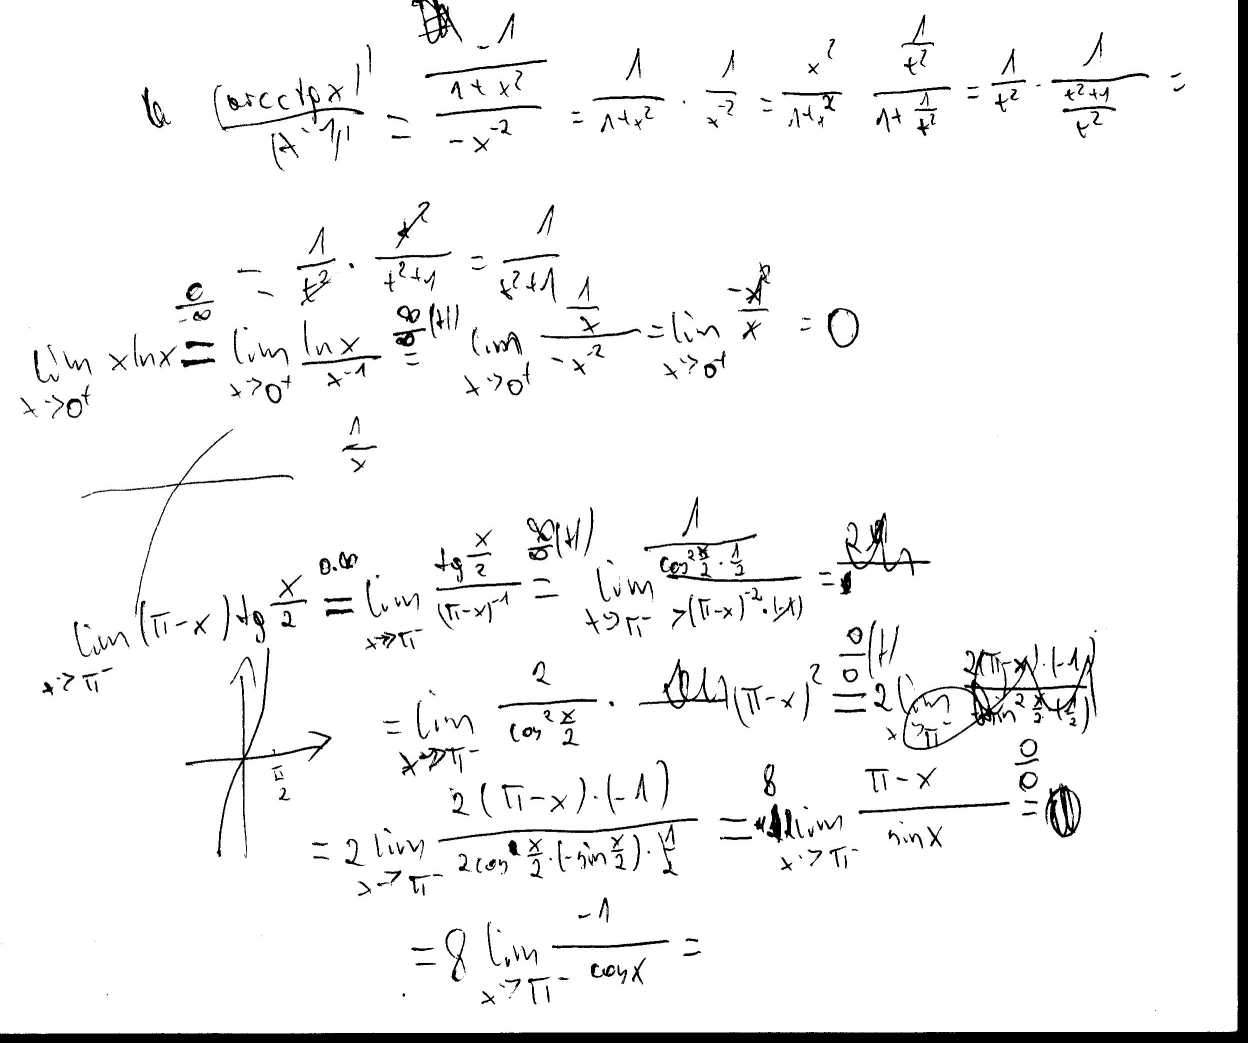 (arcctg x)' / (x^-1)' = (-1/(1+x^2)) / (-x^-2) = 1/(1+x^2) · 1/x^-2 = x^2/(1+x^2) (1/t^2)/(1+1/t^2) = 1/t^2 · 1/((t^2+1)/t^2) =
= 1/t^2 · t^2/(t^2+1) = 1/(t^2+1)
lim x→0+ x ln x = lim x→0+ ln x / x^-1 = ∞/∞ (H) lim x→0+ (1/x)/(-x^-2) = lim x→0+ -x^2/x = 0
1/x
lim x→π- (π-x) tg x/2 = 0·∞ lim x→π- tg x/2 / (π-x)^-1 = ∞/∞ (H) lim x→π- (1/(cos^2 x/2) · 1/2) / (-(π-x)^-2 · (-1)) =
= lim x→π- 2/(cos^2 x/2) · (π-x)^2 = 0/0 (H) 2 lim x→π-
π/2
= 2 lim x→π- 2(π-x)·(-1) / (2cos x/2 · (-sin x/2) · 1/2) = 8 lim x→π- (π-x)/sin x = 0/0
= 8 lim x→π- -1/cos x =